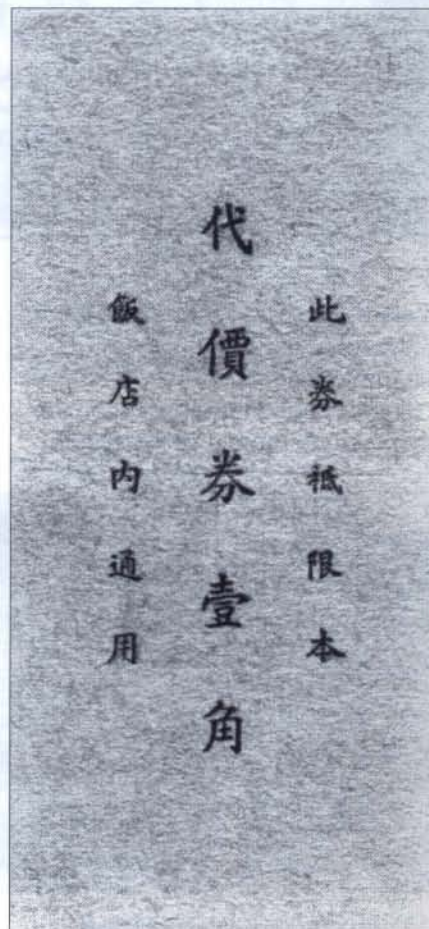 此券祗限本
代價券壹角
飯店内通用